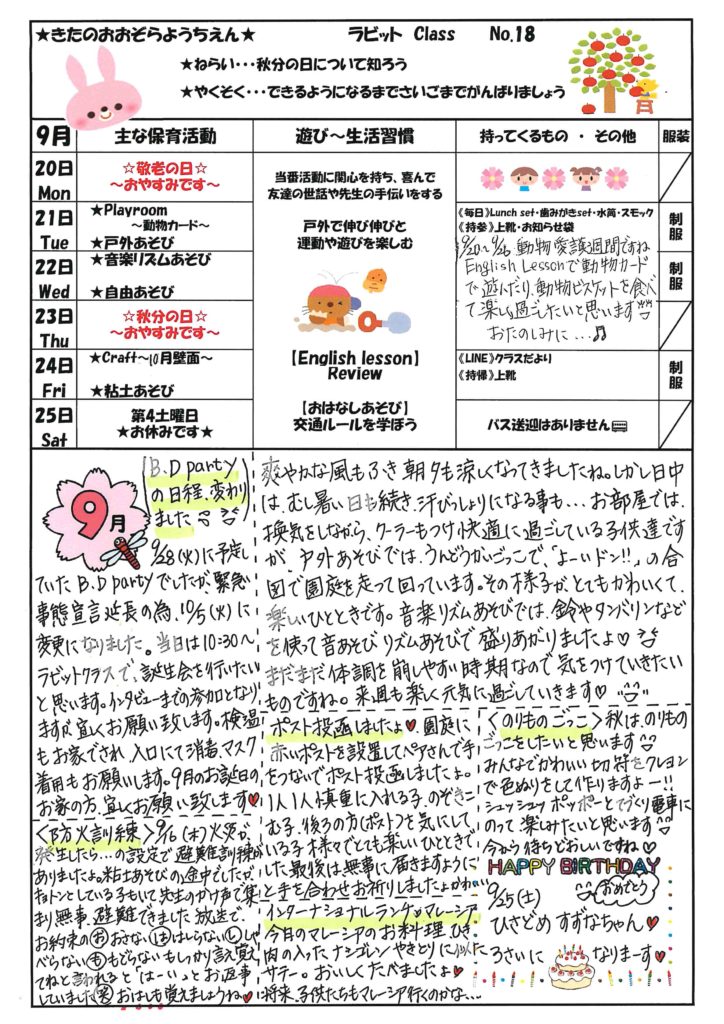 ★きたのおおぞらようちえん★　ラビット Class　No.18
★ねらい・・・秋分の日について知ろう
★やくそく・・・できるようになるまでさいごまでがんばりましょう
9月　主な保育活動　遊び～生活習慣　持ってくるもの ・ その他　服装
20日 Mon
☆敬老の日☆
～おやすみです～
21日 Tue
★Playroom
～動物カード～
★戸外あそび
22日 Wed
★音楽リズムあそび
★自由あそび
23日 Thu
☆秋分の日☆
～おやすみです～
24日 Fri
★Craft～10月壁面～
★粘土あそび
25日 Sat
第4土曜日
★お休みです★
当番活動に関心を持ち、喜んで
友達の世話や先生の手伝いをする
戸外で伸び伸びと
運動や遊びを楽しむ
【English lesson】
Review
【おはなしあそび】
交通ルールを学ぼう
《毎日》Lunch set・歯みがきset・水筒・スモック
《持参》上靴・お知らせ袋
9/20～9/26 動物愛護週間ですね
English Lessonで動物カード
で遊んだり、動物ビスケットを食べ
て楽しく過ごしたいと思います
おたのしみに…♫
《LINE》クラスだより
《持帰》上靴
バス送迎はありません
制服
制服
制服
9月
B.D party
の日程、変わり
ました
9/28(火)に予定し
ていたB.D partyでしたが、緊急
事態宣言延長の為、10/5(火)に
変更になりました。当日は10:30～
ラビットクラスで、誕生会を行いたい
と思います。インタビューまでの参加となり
ますが宜しくお願い致します。検温
もお家でされ、入口にて消毒、マスク
着用もお願いします。9月のお誕生日の
お家の方、宜しくお願い致します♥
<防火訓練>9/16(木)火災が
発生したら…の設定で避難訓練が
ありましたよ。粘土あそびの途中でしたが、
キョトンとしている子もいて先生のかけ声で集
まり無事、避難できました。放送で、
お約束の(お)おさない(は)はしらない(し)しゃ
べらない(も)もどらないもしっかり言え覚え
てねと言われると「はーい」とお返事
していました(笑)おはしも覚えましょうね♥
爽やかな風もふき朝夕も涼しくなってきましたね。しかし日中
は、むし暑い日も続き、汗びっしょりになる事も…お部屋では、
換気をしながら、クーラーもつけ快適に過ごしている子供達です
が、戸外あそびでは、うんどうかいごっこで、「よーいドン!!」の合
図で園庭を走って回っています。その様子が、とてもかわいくて、
楽しいひとときです。音楽リズムあそびでは、鈴やタンバリンなど
を使って音あそび リズムあそびで盛りあがりましたよ♥
まだまだ体調を崩しやすい時期なので気をつけていきたい
ものですね。来週も楽しく元気に過ごしていきます♥
ポスト投函しましたよ♥ 園庭に
赤いポストを設置してペアさんで手
をつないでポスト投函しましたよ。
1人1人慎重に入れる子、のぞきこ
む子、後ろの方(ポスト)を気にして
いる子様々でとても楽しいひとときで
した。最後は無事に届きますように
と手を合わせお祈りしましたよかわいい
インターナショナルランチ♥マレーシア
今日のマレーシアのお料理、ひき
肉の入ったナシゴレン やきとりに似た
サテー。おいしくたべましたよ♥
将来、子供たちもマレーシア行くのかな…
<のりものごっこ>秋は、のりもの
ごっこをしたいと思います
みんなでかわいい切符をクレヨン
で色ぬりをして作りますよー!!
シュッシュッ ポッポーと手づくり電車に
のって楽しみたいと思います
今から待ちどおしいですね♥
HAPPY BiRTHDAY
おめでとう
9/25(土)
ひさどめ すずなちゃん♥
3さいに なりまーす♥